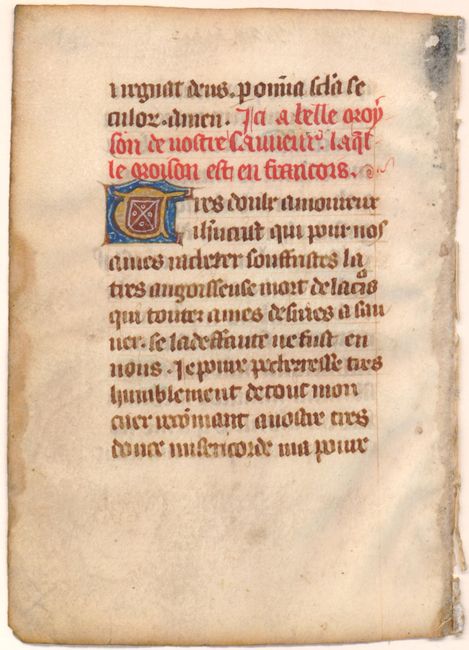 t regnat deus. p om̅ia sc̅la se
culor. amen. Ici a belle oroy
son de nostre sauueur. laq̅l
le oroison est en francois.
Tres doulz amoureux
ihucrist qui pour nos
ames racheter souffristes la
tres angoisseuse mort de la crois
qui toutes ames desires a sau
uer. se la deffaute ne fust en
nous. Je poure pecherresse tres
humblement de tout mon
cuer reco̅mant a uostre tres
doulce misericorde ma poure